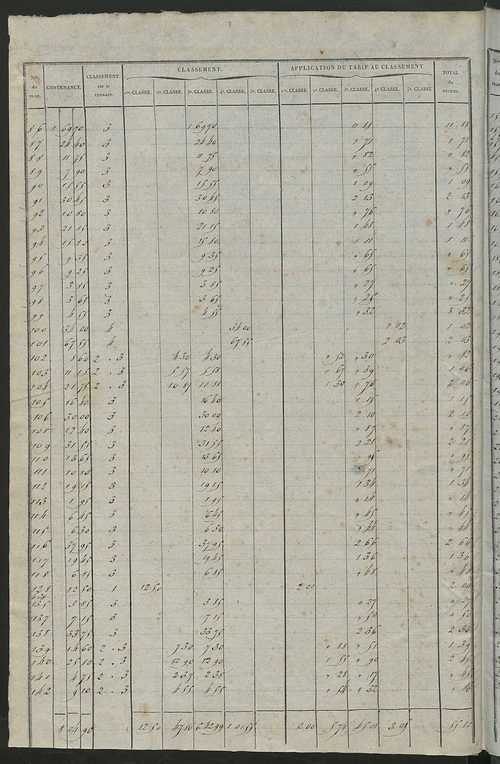 CLASSEMENT. APPLICATION DU TARIF AU CLASSEMENT.
Nos. du PLAN. CONTENANCE. CLASSEMENT sur le TERRAIN. 1re. CLASSE. 2e. CLASSE. 3e. CLASSE. 4e. CLASSE. 5e. CLASSE. 1re. CLASSE. 2e. CLASSE. 3e. CLASSE. 4e. CLASSE. 5e. CLASSE. TOTAL du REVENU.
86 1 69 70 3 1 69 70 11 88 11 88
87 24 40 3 24 40 1 71 1 71
88 11 75 3 11 75 " 82 " 82
89 7 90 3 7 90 " 55 " 55
90 15 55 3 15 55 1 09 1 09
91 30 45 3 30 45 2 13 2 13
92 10 80 3 10 80 " 76 " 76
93 21 15 3 21 15 1 48 1 48
94 15 80 3 15 80 1 11 1 11
95 9 35 3 9 35 " 65 " 65
96 9 25 3 9 25 " 65 " 65
97 3 85 3 3 85 " 27 " 27
98 3 65 3 3 65 " 25
99 4 55 3 4 55 " 32 " 32
100 34 00 4 34 00 1 02 1 02
101 67 55 4 67 55 2 03 2 03
102 8 60 2 . 3 4 30 4 30 " 52 " 30 " 82
103 11 15 2 . 3 5 57 5 58 " 67 " 39 1 06
104 21 75 2 . 3 10 87 10 88 1 30 " 76 2 06
105 16 40 3 16 40 1 15 1 15
106 30 00 3 30 00 2 10 2 10
12 40 3 12 40 " 87 " 87
109 31 55 3 31 55 2 21 2 21
110 13 65 3 13 65
111 10 10 3 10 10 " 71 " 71
112 19 15 3 19 15 1 34 1 34
113 1 95 3 1 95 " 14 " 14
114 6 45 3 6 45 " 45 " 45
115 6 30 3 6 30 " 44 " 44
116 37 95 3 37 95 2 66 2 66
117 19 45 3 19 45 1 36 1 36
118 6 85 3 6 85 " 48 " 48
12 50 1 12 50 2 00 2 00
3 85 3 3 85 " 27 " 27
137 7 15 3 7 15 " 50 " 50
138 33 75 3 33 75 2 36 2 36
139 14 60 2 . 3 7 30 7 30 " 88 " 51 1 39
140 2 . 3 12 90 12 90 1 55 " 90 2 45
141 2 . 3 2 37 2 38 " 28 " 17
142 9 10 2 . 3 4 55 4 55 " 32
12 50 2 00 45 01